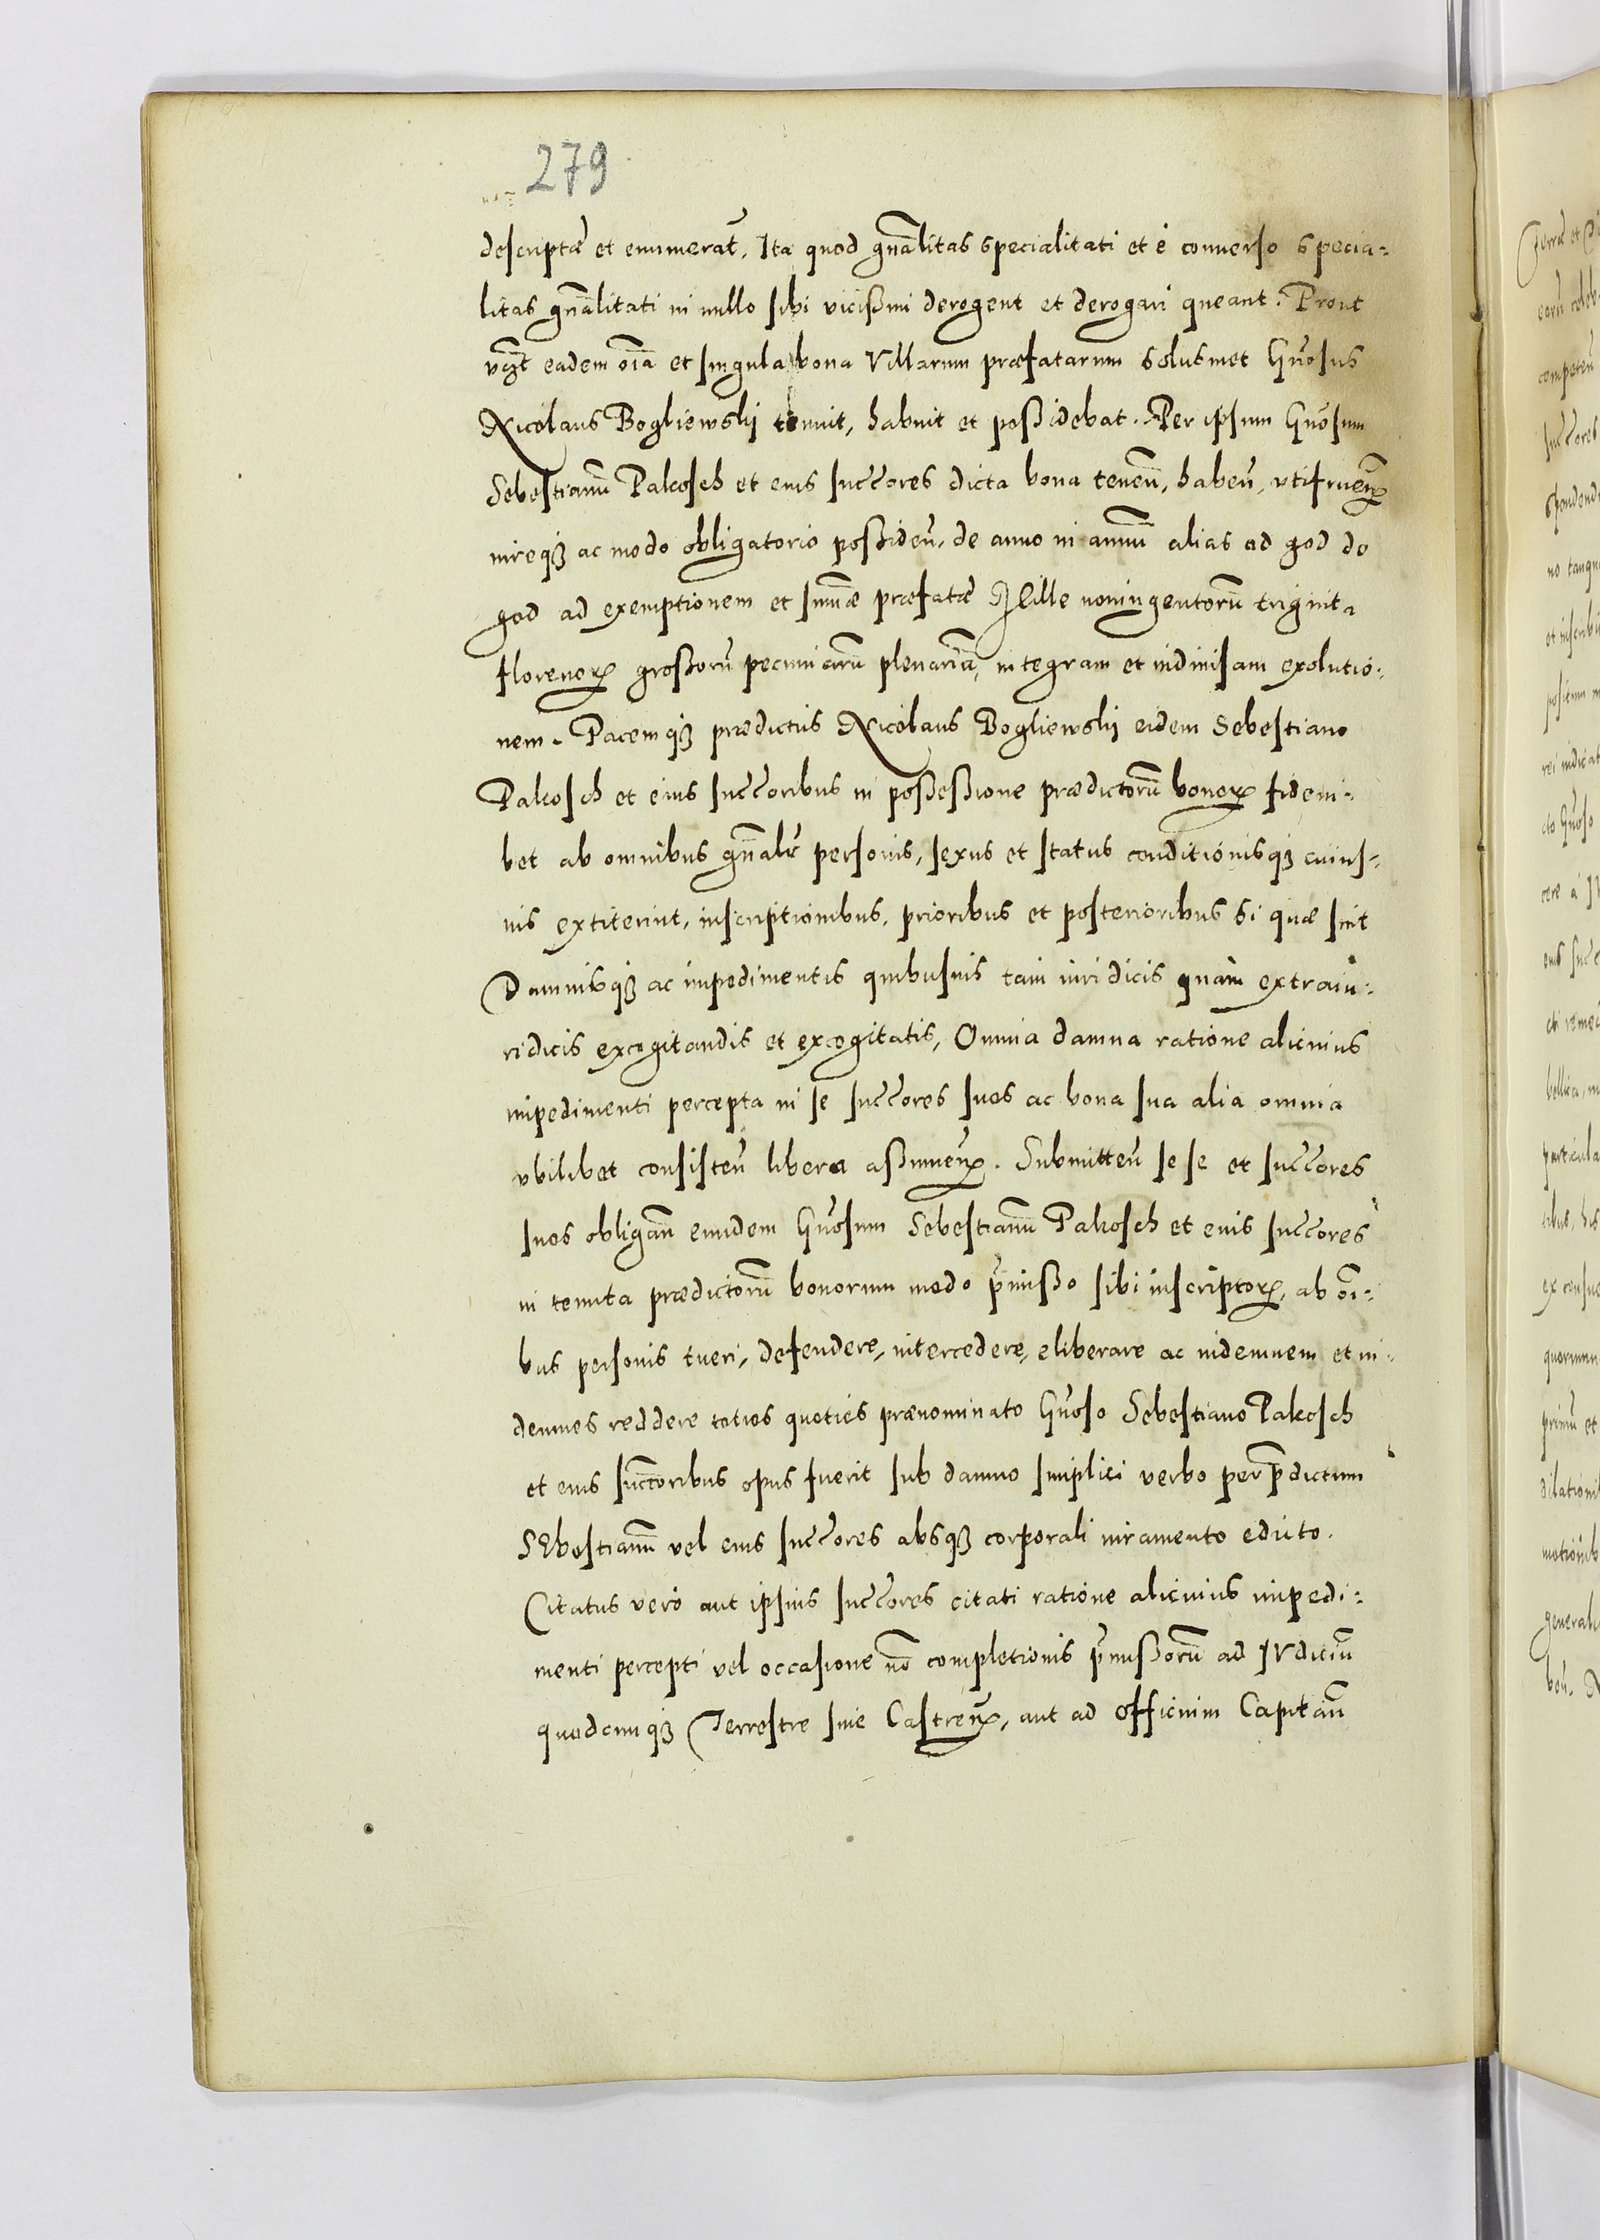 279
descriptæ et enumerat̃. Ita quod gñalitas specialitati et è conuerso specia-
litas gñalitati in nullo sibi vicißim derogent et derogari queant. Prout
vczt eadem oĩa et singula bona Villarum præfatarum solusmet Gñosus
Nicolaus Bogliewskij tenuit, habuit et poßidebat. Per ipsum Gñosum
Sebestianũ Palcosch et eius succores dicta bona teneñ, habeñ, vtifrueñ
iureq₃ ac modo obligatorio poßideñ, de anno in annũ alias od god do
god ad exemptionem et sum̃æ præfatæ Mille noningentorũ triginta
florenorꝝ großorũ pecuniarũ plenariã, integram et indiuisam exolutio-
nem. Pacemq₃ prædictus Nicolaus Bogliewskij eidem Sebestiano
Palcosch et eius succoribus in poßeßione prædictorũ bonorꝝ fideiu-
bet ab omnibus gñalr personis, sexus et status conditionisq₃ cuius-
uis extiterint, inscriptionibus, prioribus et posterioribus si quæ sint
Damnisq₃ ac impedimentis quibusuis tam iuridicis quàm extraiu-
ridicis excogitandis et excogitatis, Omnia damna ratione alicuius
impedimenti percepta in se succores suos ac bona sua alia omnia
vbilibet consisteñ libera aßumeñ. Submitteñ sese et succores
suos obligañ eundem Gñosum Sebestianũ Palcosch et eius succores
in tenuta prædictorũ bonorum modo p̃mißo sibi inscriptorꝝ, ab oĩ-
bus personis tueri, defendere, intercedere, eliberare ac indemnem et in-
demnes reddere toties quoties prænominato Gñoso Sebestiano Palcosch
et eius succoribus opus fuerit sub damno simplici verbo per p̃dictum
Sebestianũ vel eius succores absq₃ corporali iuramento edicto.
Citatus verò aut ipsius succores citati ratione alicuius impedi-
menti percepti vel occasione nõ completionis p̃mißorũ ad Iudiciũ
quodcunq₃ Terrestre siue Castreñ, aut ad Officium Capitañ